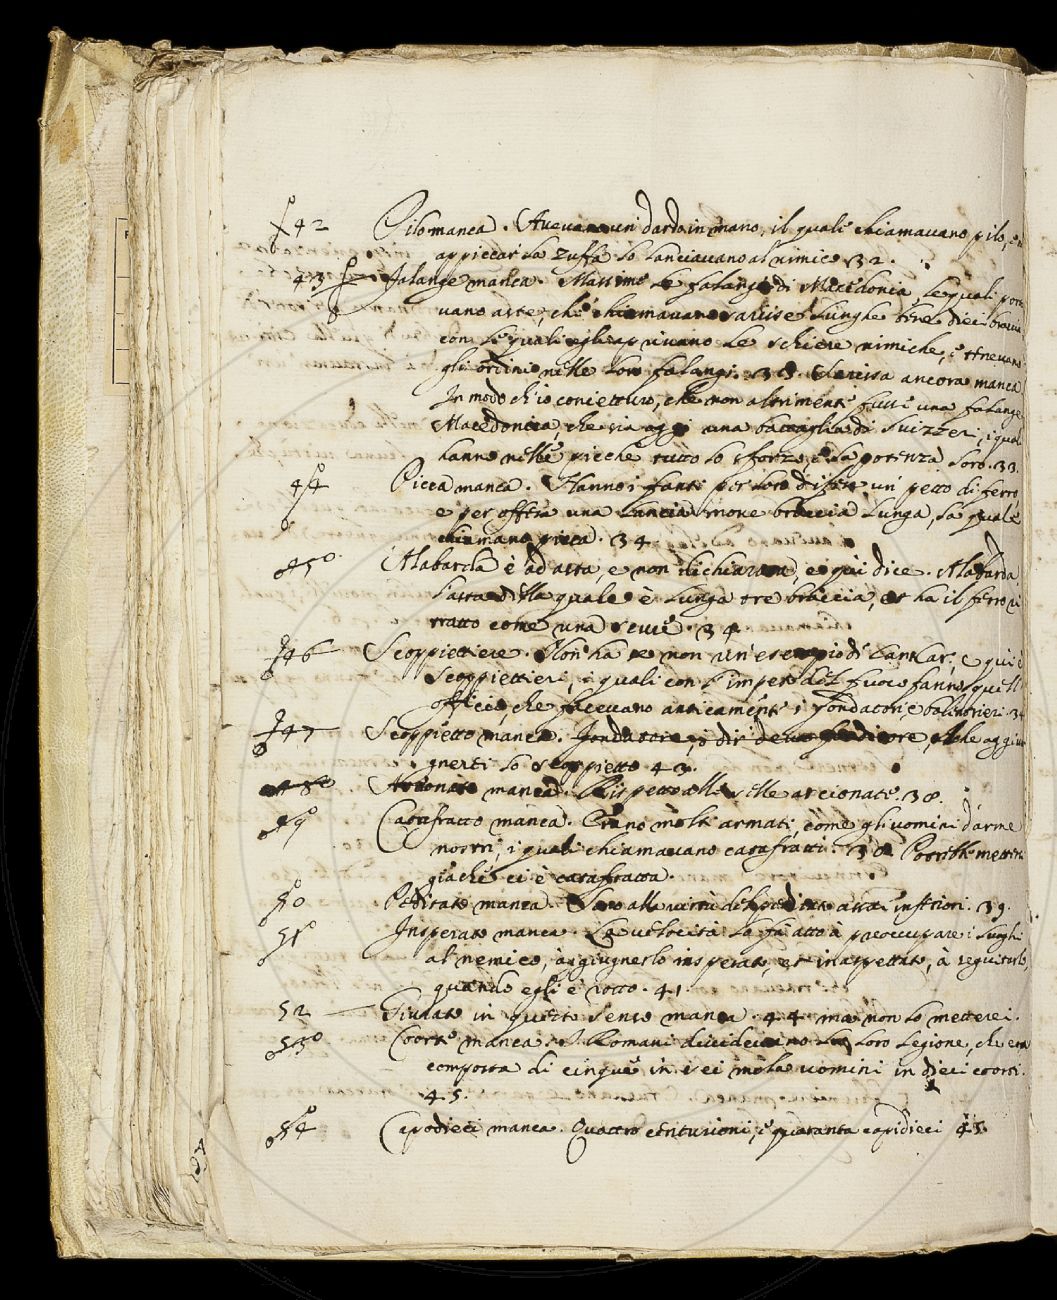 42 Pilo manca. Avevano un dardo in mano, il quale chiamavano pilo, e
appiccar la zuffa lo lanciavano al nimico 32.
43 Falange manca. Massime le falangi di Macedonia, le quali porta
vano aste, che chiamavano sarisse lunghe bene dieci braccia
con le quali eglino aprivano le schiere nimiche, e tenevano
gli ordini nelle loro falangi. 33. Sarissa ancora manca
In modo ch'io conietturo, che non altrimente fussi una falange
Macedonica, che sia oggi una battaglia di Svizzeri, i quali
hanno nelle picche tutto lo sforzo, e la potenza loro. 33.
44 Picca manca. Hanno i fanti per loro difesa un petto di ferro
e per offesa una lancia nove braccia lunga, la quale
chiamano picca. 34
45 Alabarda è ad asta, e non dichiarata, e qui dice. Alabarda
l'asta della quale è lunga tre braccia, et ha il ferro ri
tratto come una scure. 34
46 Scoppiettiere. Non ha se non un'esempio di Cant. Car. e qui è
Scoppiettieri, i quali con l'impeto del fuoco fanno quell'
officio, che facevano anticamente i fondatori e balestrieri. 34
47 Scoppietto manca. fondatore, o dir che aggiu
gnerti lo scoppietto 43.
48 Arcionato manca. Rispetto alle selle arcionate. 38.
49 Catafratto manca. Erano molti armati, come gli uomini d'arme
nostri, i quali chiamavano catafratti. 38 Potrebbe mettersi
giachè ci è catafratta.
50 manca. Sono alla virtù de assai inferiori. 39.
51 Insperato manca. La velocità lo fa atto a preoccupare i luoghi
al nemico, à giugnerlo insperato, et inaspettato, à seguitarlo,
quando egli è rotto. 41.
52 in questo senso manca. 44 ma non lo metterei.
53 Coorte manca. I Romani dividevano la loro legione, che era
composta di cinque in sei mila uomini in dieci coorti.
45.
54 Capodieci manca. Quattro centurioni, e quaranta capidieci 45.